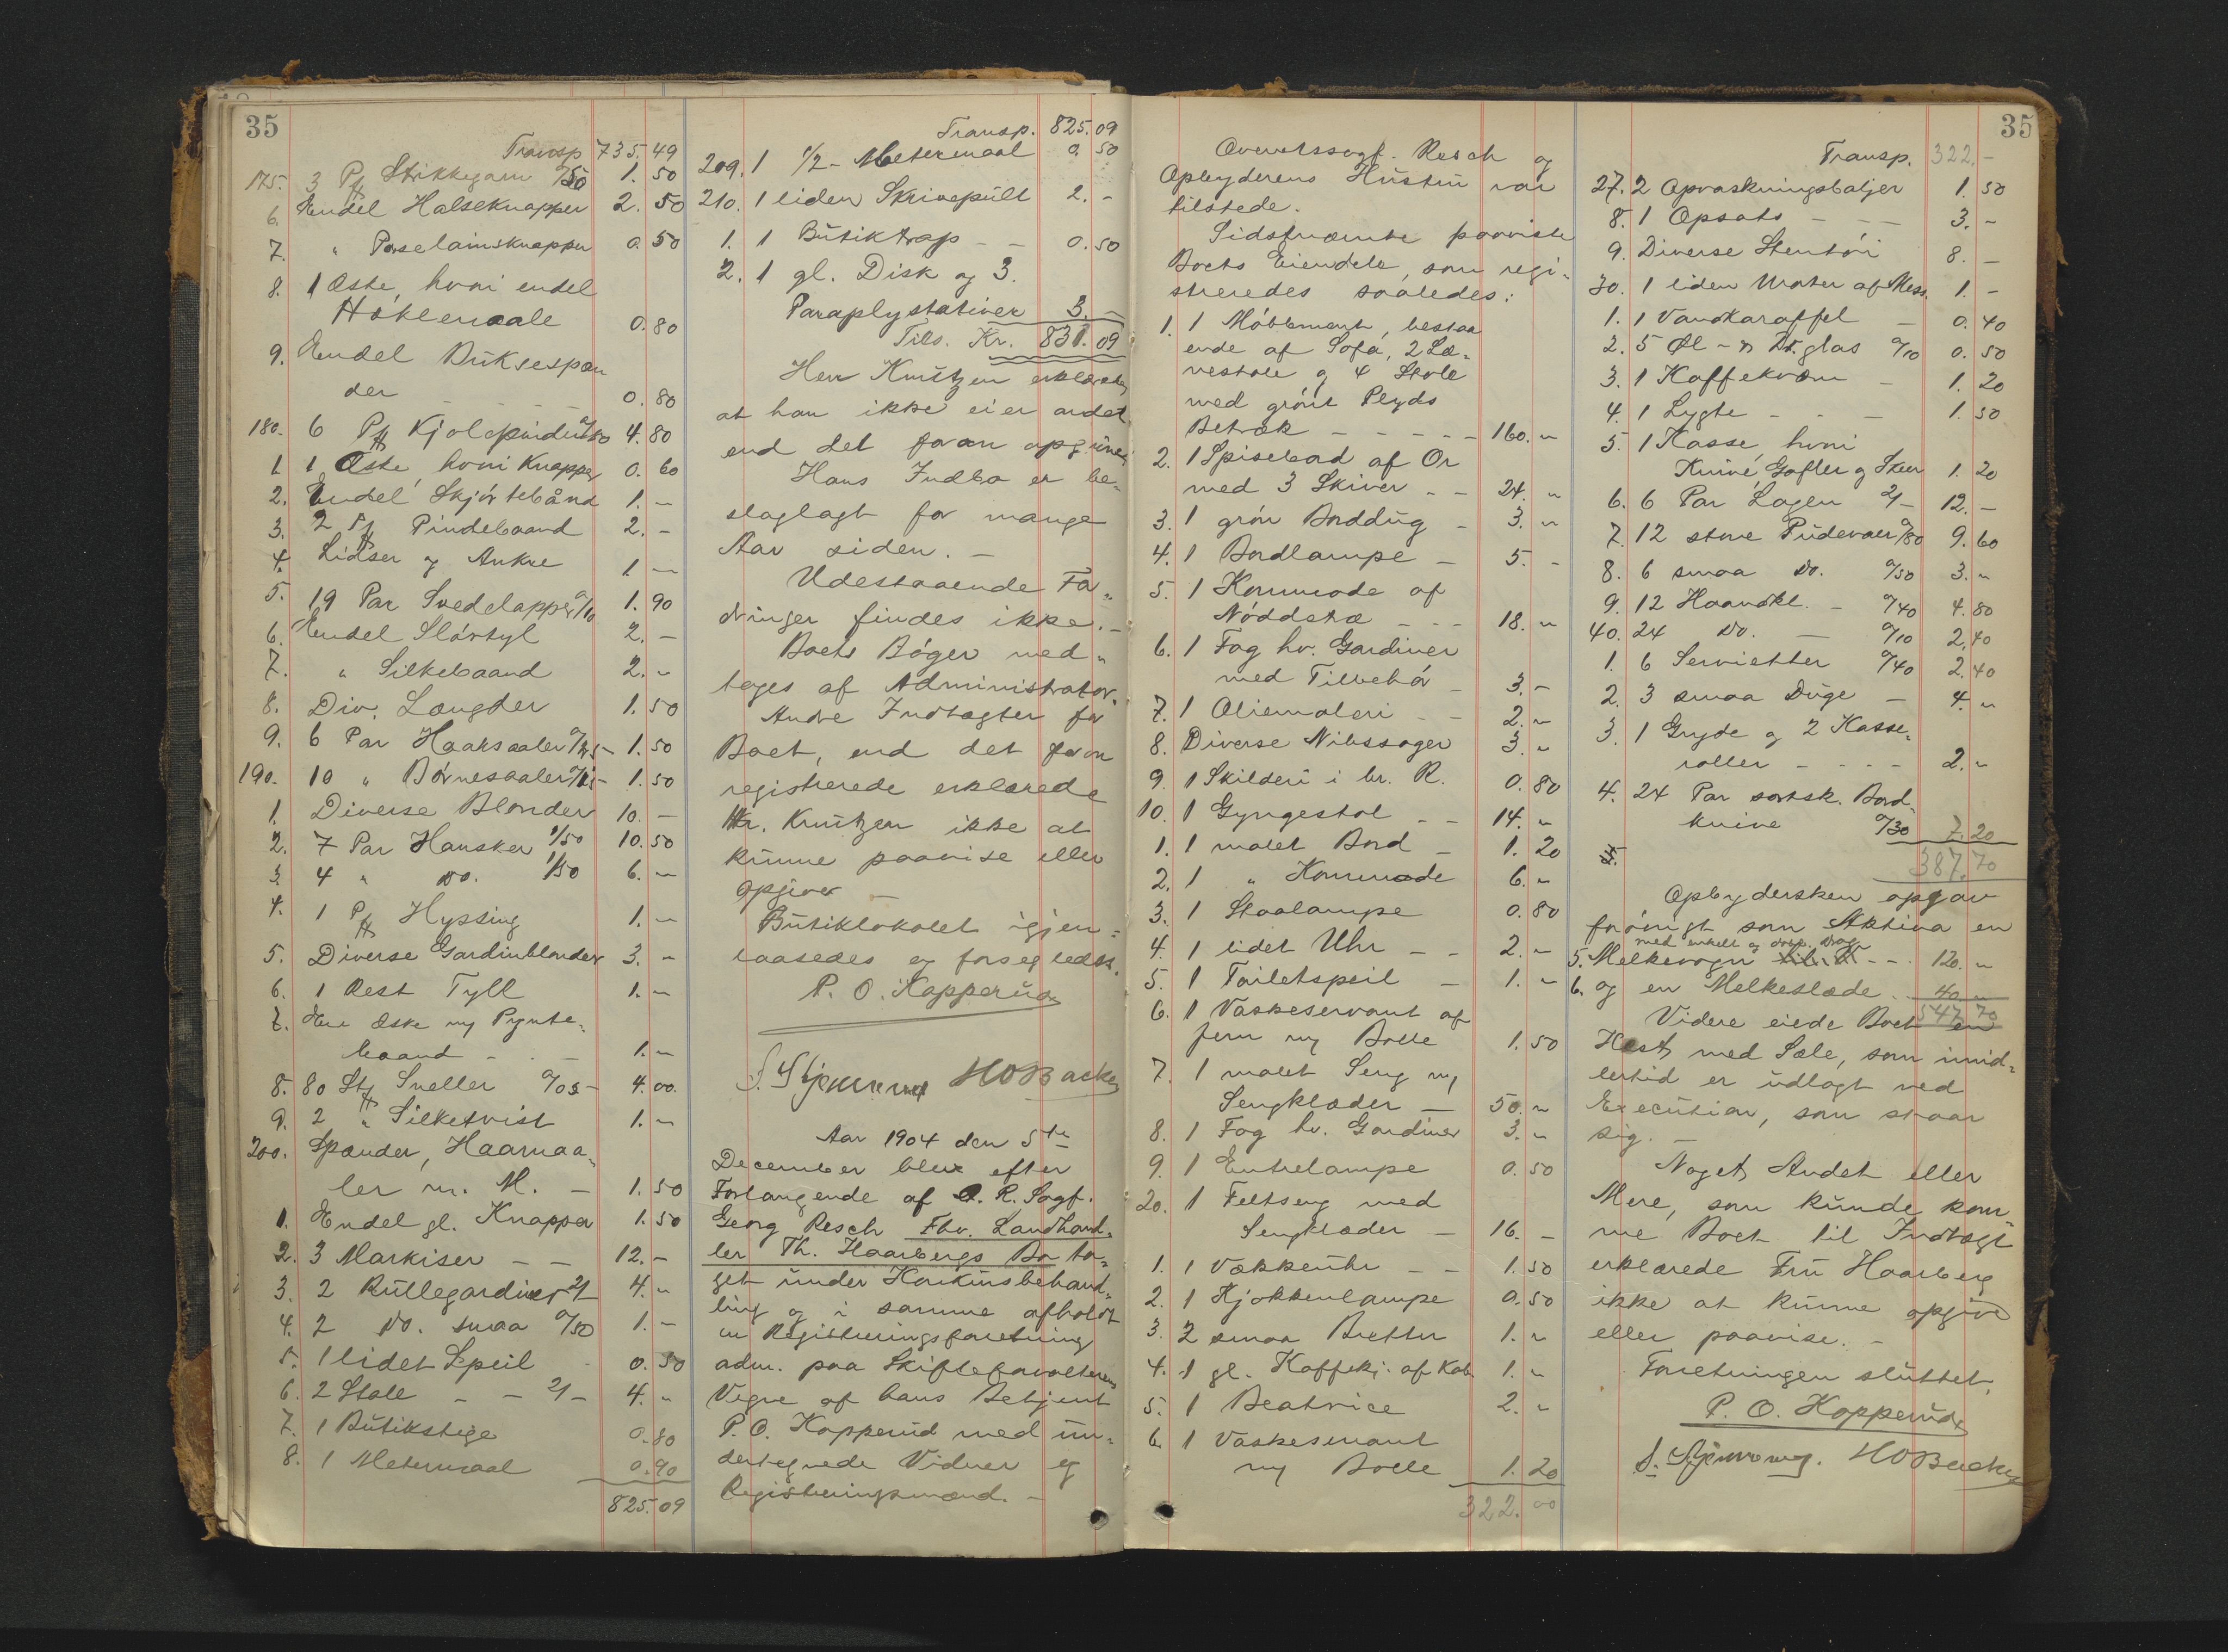 35
Transp 735.49
175. 3 Pk Strikkegarn 0/50 1.50
6. Endel Halseknapper 2.50
7. " Porselainsknapper 0.50
8. 1 Æske, hvori endel
Heklenaale 0.80
9. Endel Buksespæn
der - - - 0.80
180. 6 Pk Kjolepinder 0/80 4.80
1. 1 Æske, hvori Knapper 0.60
2. Endel Skjørtebånd 1.-
3. 2 Pk Pindebaand 2.-
4. Lidser og Ankre 1.-
5. 19 Par Svedelapper 0/10 1.90
6. Endel Slørtyl 2.-
7. " Silkebaand 2.-
8. Div. Længder 1.50
9. 6 Par Haaksaaler 0/25- 1.50
190. 10 " Børnesaaler 0/15- 1.50
1. Diverse Blonder 10.-
2. 7 Par Hansker 1/50 10.50
3. 4 " Do. 1/50 6.-
4. 1 Pk Hyssing 1.-
5. Diverse Gardinblonder 3.-
6. 1 Rest Tyll 1.-
7. Een Æske m/ Pynte-
baand - - 1.-
8. 80 Stk Sneller 0/05- 4.00.
9. 2 " Silketvist 1.-
200. Spænder, Haarnaa-
ler m. M. - 1.50
1. Endel gl. Knapper 1.50
2. 3 Markiser - - 12.-
3. 2 Rullegardiner 2/- 4.-
4. 2 Do. smaa 0/50 1.-
5. 1 lidet Speil 0.50
6. 2 Stole - - 2/- 4.-
7. 1 Butikstige 0.80
8. 1 Metermaal 0.90
825.09
Transp. 825.09
209. 1 1/2-Metermaal 0.50
210. 1 liden Skrivepult 2.-
1. 1 Butiktrap - - 0.50
2. 1 gl. Disk og 3.
Paraplystativer 3.-
Tils. Kr. 831.09
Herr Knutzen erklærede,
at han ikke eier andet
end det foran opgivne.
Hans Indbo er be-
slaglagt for mange
Aar siden. -
Udestaaende For-
dringer findes ikke. -
Boets Bøger med-
toges af Administrator.
Andre Indtægter for
Boet, end det foran
registrerede erklærede
Hr. Knutzen ikke at
kunne paavise eller
opgive -
Butiklokalet igjen-
laasedes og forsegledes.
P. O. Kopperud
HOBacke
Aar 1904 den 5te
December blev efter
Forlangende af O. R. Sagf.
Georg Resch Fhv. Landhand-
ler Th. Haarbergs Bo ta-
get under Konkursbehand-
ling og i samme afholdt
en Registreringsforretning
adm. paa Skifteforvalterens
Vegne af hans Betjent
P. O. Kopperud med un-
dertegnede Vidner og
Registreringsmænd. -
Overretssagf. Resch og
Opbyderens Hustru var
tilstede.
Sidstnævnte paaviste
Boets Eiendele, som regi-
streredes saaledes:
1. 1 Møblement, bestaa
ende af Sofa, 2 Læ-
nestole og 4 Stole
med grønt Plyds
Betræk - - - - - 160.-
2. 1 Spisebord af Or
med 3 Skiver - - 24.-
3. 1 grøn Borddug - 3.-
4. 1 Bordlampe - 5.-
5. 1 Kommode af
Nøddetræ - - - 18.-
6. 1 Fag hv. Gardiner
med Tilbehør - 3.-
7. 1 Oliemaleri - - 2.-
8. Diverse Nibssager 3.-
9. 1 Skilderi i br. R. 0.80
10. 1 Gyngestol - - 14.-
1. 1 malet Bord - 1.20
2. 1 " Kommode 6.-
3. 1 Staalampe 0.80
4. 1 lidet Uhr - - 2.-
5. 1 Toiletspeil - 1.-
6. 1 Vaskeservant af
jern m/ Bolle 1.50
7. 1 malet Seng m/
Sengklæder - 50.-
8. 1 Fag hv. Gardiner 3.-
9. 1 Entrelampe 0.50
20. 1 Feltseng med
Sengklæder - 16.-
1. 1 Vækkeuhr - - 1.50
2. 1 Kjøkkenlampe 0.50
3. 2 smaa Bretter 1.-
4. 1 gl. Kaffekj. af Kob. 1.-
5. 1 Beatrice 2.-
6. 1 Vaskeservant
m/ Bolle 1.20
322.00
35
Transp. 322.-
27. 2 Opvaskningsbaljer 1.50
8. 1 Opsats - - - 3.-
9. Diverse Stentøi 8.-
30. 1 liden Morter af Mess. 1.-
1. 1 Vandkaraffel - 0.40
2. 5 Øl- & Dr.glas 0/10 0.50
3. 1 Kaffekværn - 1.20
4. 1 Lygte - - - 1.50
5. 1 Kasse, hvori
Knive, Gafler og Skeer 1.20
6. 6 Par Lagen 2/- 12.-
7. 12 store Pudevaer 0/80 9.60
8. 6 smaa Do. 0/50 3.-
9. 12 Haandkl. - 0/40 4.80
40. 24 Do. - 0/10 2.40
1. 6 Servietter 0/40 2.40
2. 3 smaa Duge - 4.-
3. 1 Gryde og 2 Kasse-
roller - - - - 2.-
4. 24 Par sortsk. Bord-
knive 0/30 7.20
5. 387.70
Opbydersken opgav
forøvrigt som Aktiva en
med enkelt og dobb. Drag
5. Melkevogn - - - 120.-
6. og en Melkeslæde. 40.-
547.70
Videre eiede Boet en
Hest med Sele, som imid-
lertid er udlagt ved
Execution, som staar
sig. -
Noget Andet eller
Mere, som kunde kom-
me Boet til Indtægt
erklærede Fru Haarberg
ikke at kunne opgive
eller paavise. -
Forretningen sluttet.
P. O. Kopperud
HOBacke